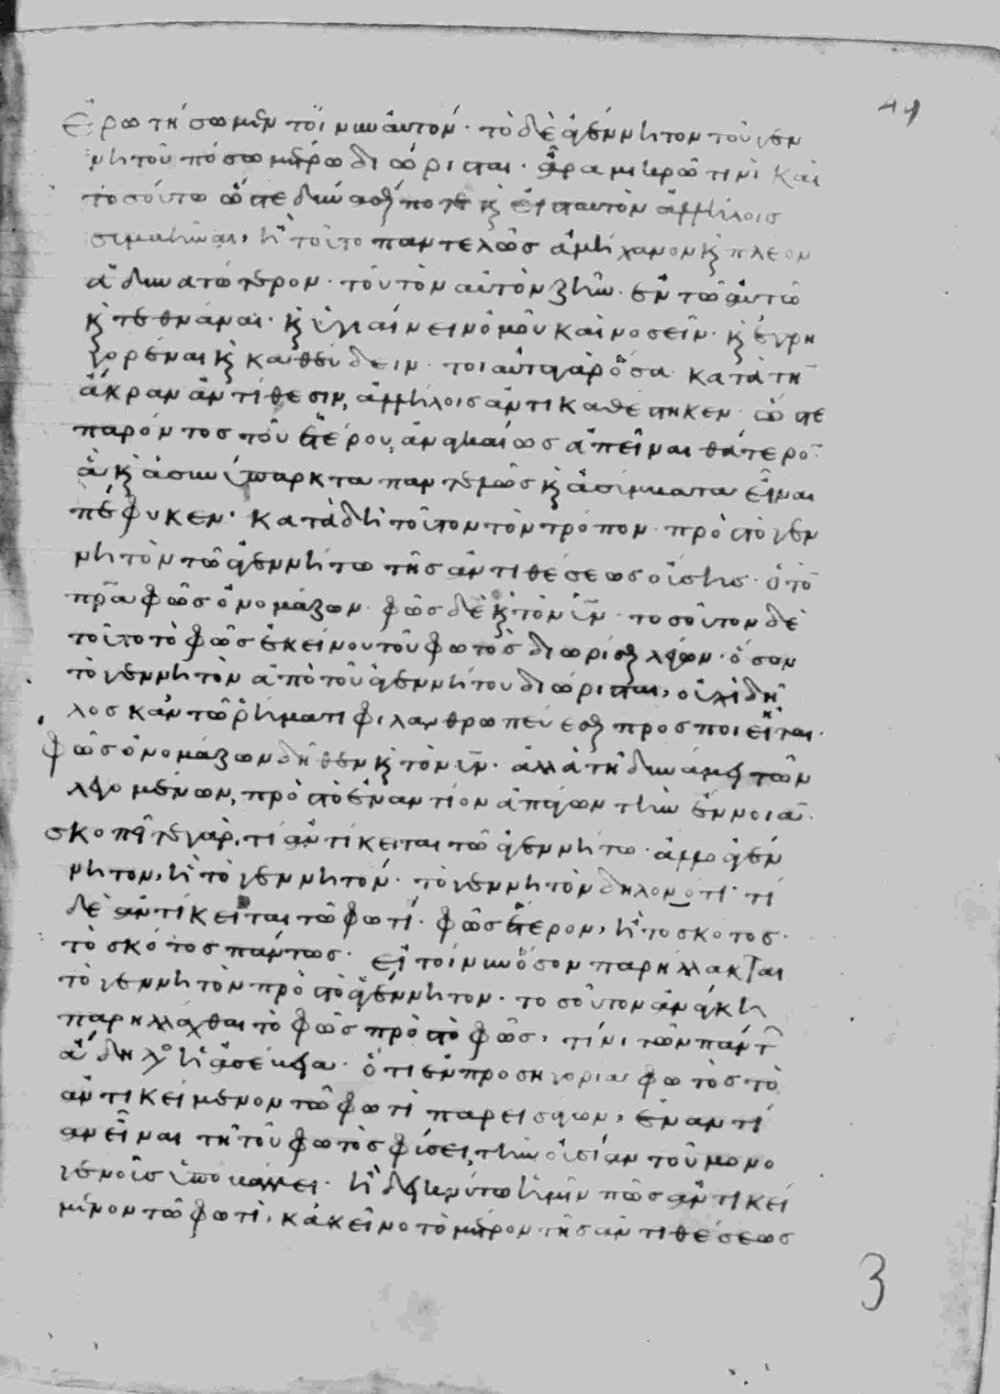 44
Ἐρωτήσωμεν τοίνυν αὐτόν· τὸ δὲ ἀγέννητον τοῦ γεν
νητοῦ πόσω μέτρω διώρισται· ἆρα μικρῶ τινὶ καὶ
τοσούτω ὥστε δύνασθαί ποτε κ εἰς ταυτὸν ἀλλήλοις
συμβῆναι, ἢ τοῦτο παντελῶς ἀμήχανον κ πλέον
ἀδυνατώτερον· τοῦ τὸν αὐτὸν ζῆν ἐν τῶ αὐτῶ
κ τεθνάναι· κ ὑγιαίνειν ὁμοῦ καὶ νοσεῖν· κ ἐγρη
γορέναι κ καθεύδειν· τοιαῦτα γὰρ ὅσα κατὰ τὴ
ἄκραν ἀντίθεσιν, ἀλλήλοις ἀντικαθέστηκεν ὥστε
παρόντος τοῦ ἑτέρου, ἀναγκαίως ἀπεῖναι θάτερο
ἃ κ ἀσυνύπαρκτα παντελῶς κ ἀσύμβατα εἶναι
πέφυκεν· κατὰ δὴ τοῦτον τὸν τρόπον πρὸς τὸ γεν
νητὸν τῶ ἀγεννήτω τῆς ἀντιθέσεως οὔσης· ὁ τὸ
πρα φῶς ὀνομάζων· φῶς δὲ κ τὸν υν· τοσοῦτον δὲ
τοῦτο τὸ φῶς ἐκείνου τοῦ φωτὸς διωρίσθαι λέγων· ὅσον
τὸ γεννητὸν ἀπὸ τοῦ ἀγεννήτου διώρισται, οὐχὶ δῆ
λος κἂν τῶ ῥήματι φιλανθρωπεύεσθαι προσποιεῖται·
φῶς ὀνομάζων δῆθεν κ τὸν υν· ἀλλὰ τῆ δυνάμει τῶν
λεγομένων, πρὸς τὸ ἐναντίον ἀπάγων τὴν ἔννοια·
σκοπεῖτε γὰρ, τί ἀντίκειται τῶ ἀγεννήτω· ἄλλο ἀγέν
νητον, ἢ τὸ γεννητόν· τὸ γεννητὸν δηλονότι· τί
δὲ ἀντίκειται τῶ φωτί· φῶς ἕτερον, ἢ τὸ σκότος·
τὸ σκότος πάντως· εἰ τοίνυν ὅσον παρήλλακται
τὸ γεννητὸν πρὸς τὸ ἀγέννητον· τοσοῦτον ἀνάγκη
παρηλλάχθαι τὸ φῶς πρὸς τὸ φῶς, τίνι τῶν πάντ
ἄδηλο ἡ ἀσέβεια· ὅτι ἐν προσηγορία φωτὸς τὸ
ἀντικείμενον τῶ φωτὶ παρεισάγων, ἐναντί
αν εἶναι τῆ τοῦ φωτὸς φύσει, τὴν οὐσίαν τοῦ μονο
γενοῦς ὑποβάλλει· ἢ δεικνύτω ἡμῖν πῶς ἀντικεί
μενον τῶ φωτὶ, κἀκεῖνο τὸ μέτρον τῆς ἀντιθέσεως
3